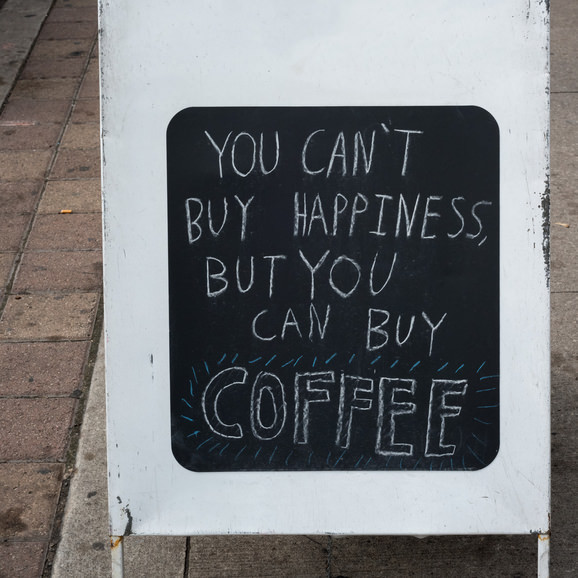 YOU CAN'T
BUY HAPPINESS,
BUT YOU
CAN BUY
COFFEE